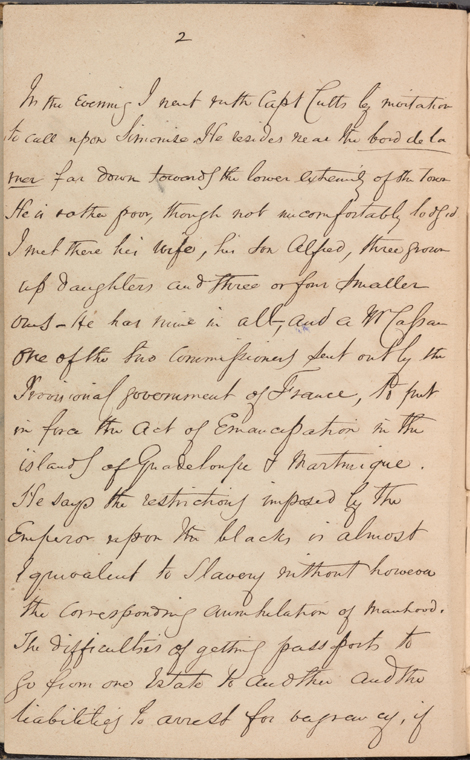 2
In the evening I went with Capt Cutts by invitation
to call upon Simonise. He resides near the bord de la
mer far down towards the lower extremity of the town
He is rather poor, though not uncomfortably lodged
I met there his wife, his son Alfred, three grown
up daughters and three or four smaller
ones - He has nine in all, and a Mr
one of the two Commissioners sent out by the
Provisional government of France, to put
in force the Act of Emancipation in the
islands of Guadeloupe & Martinique.
He says the restrictions imposed by the
Emperor upon the blacks is almost
equivalent to Slavery without however
the corresponding annihilation of manhood.
The difficulties of getting passports to
go from one Estate to another and the
liabilities to arrest for vagrancy, if